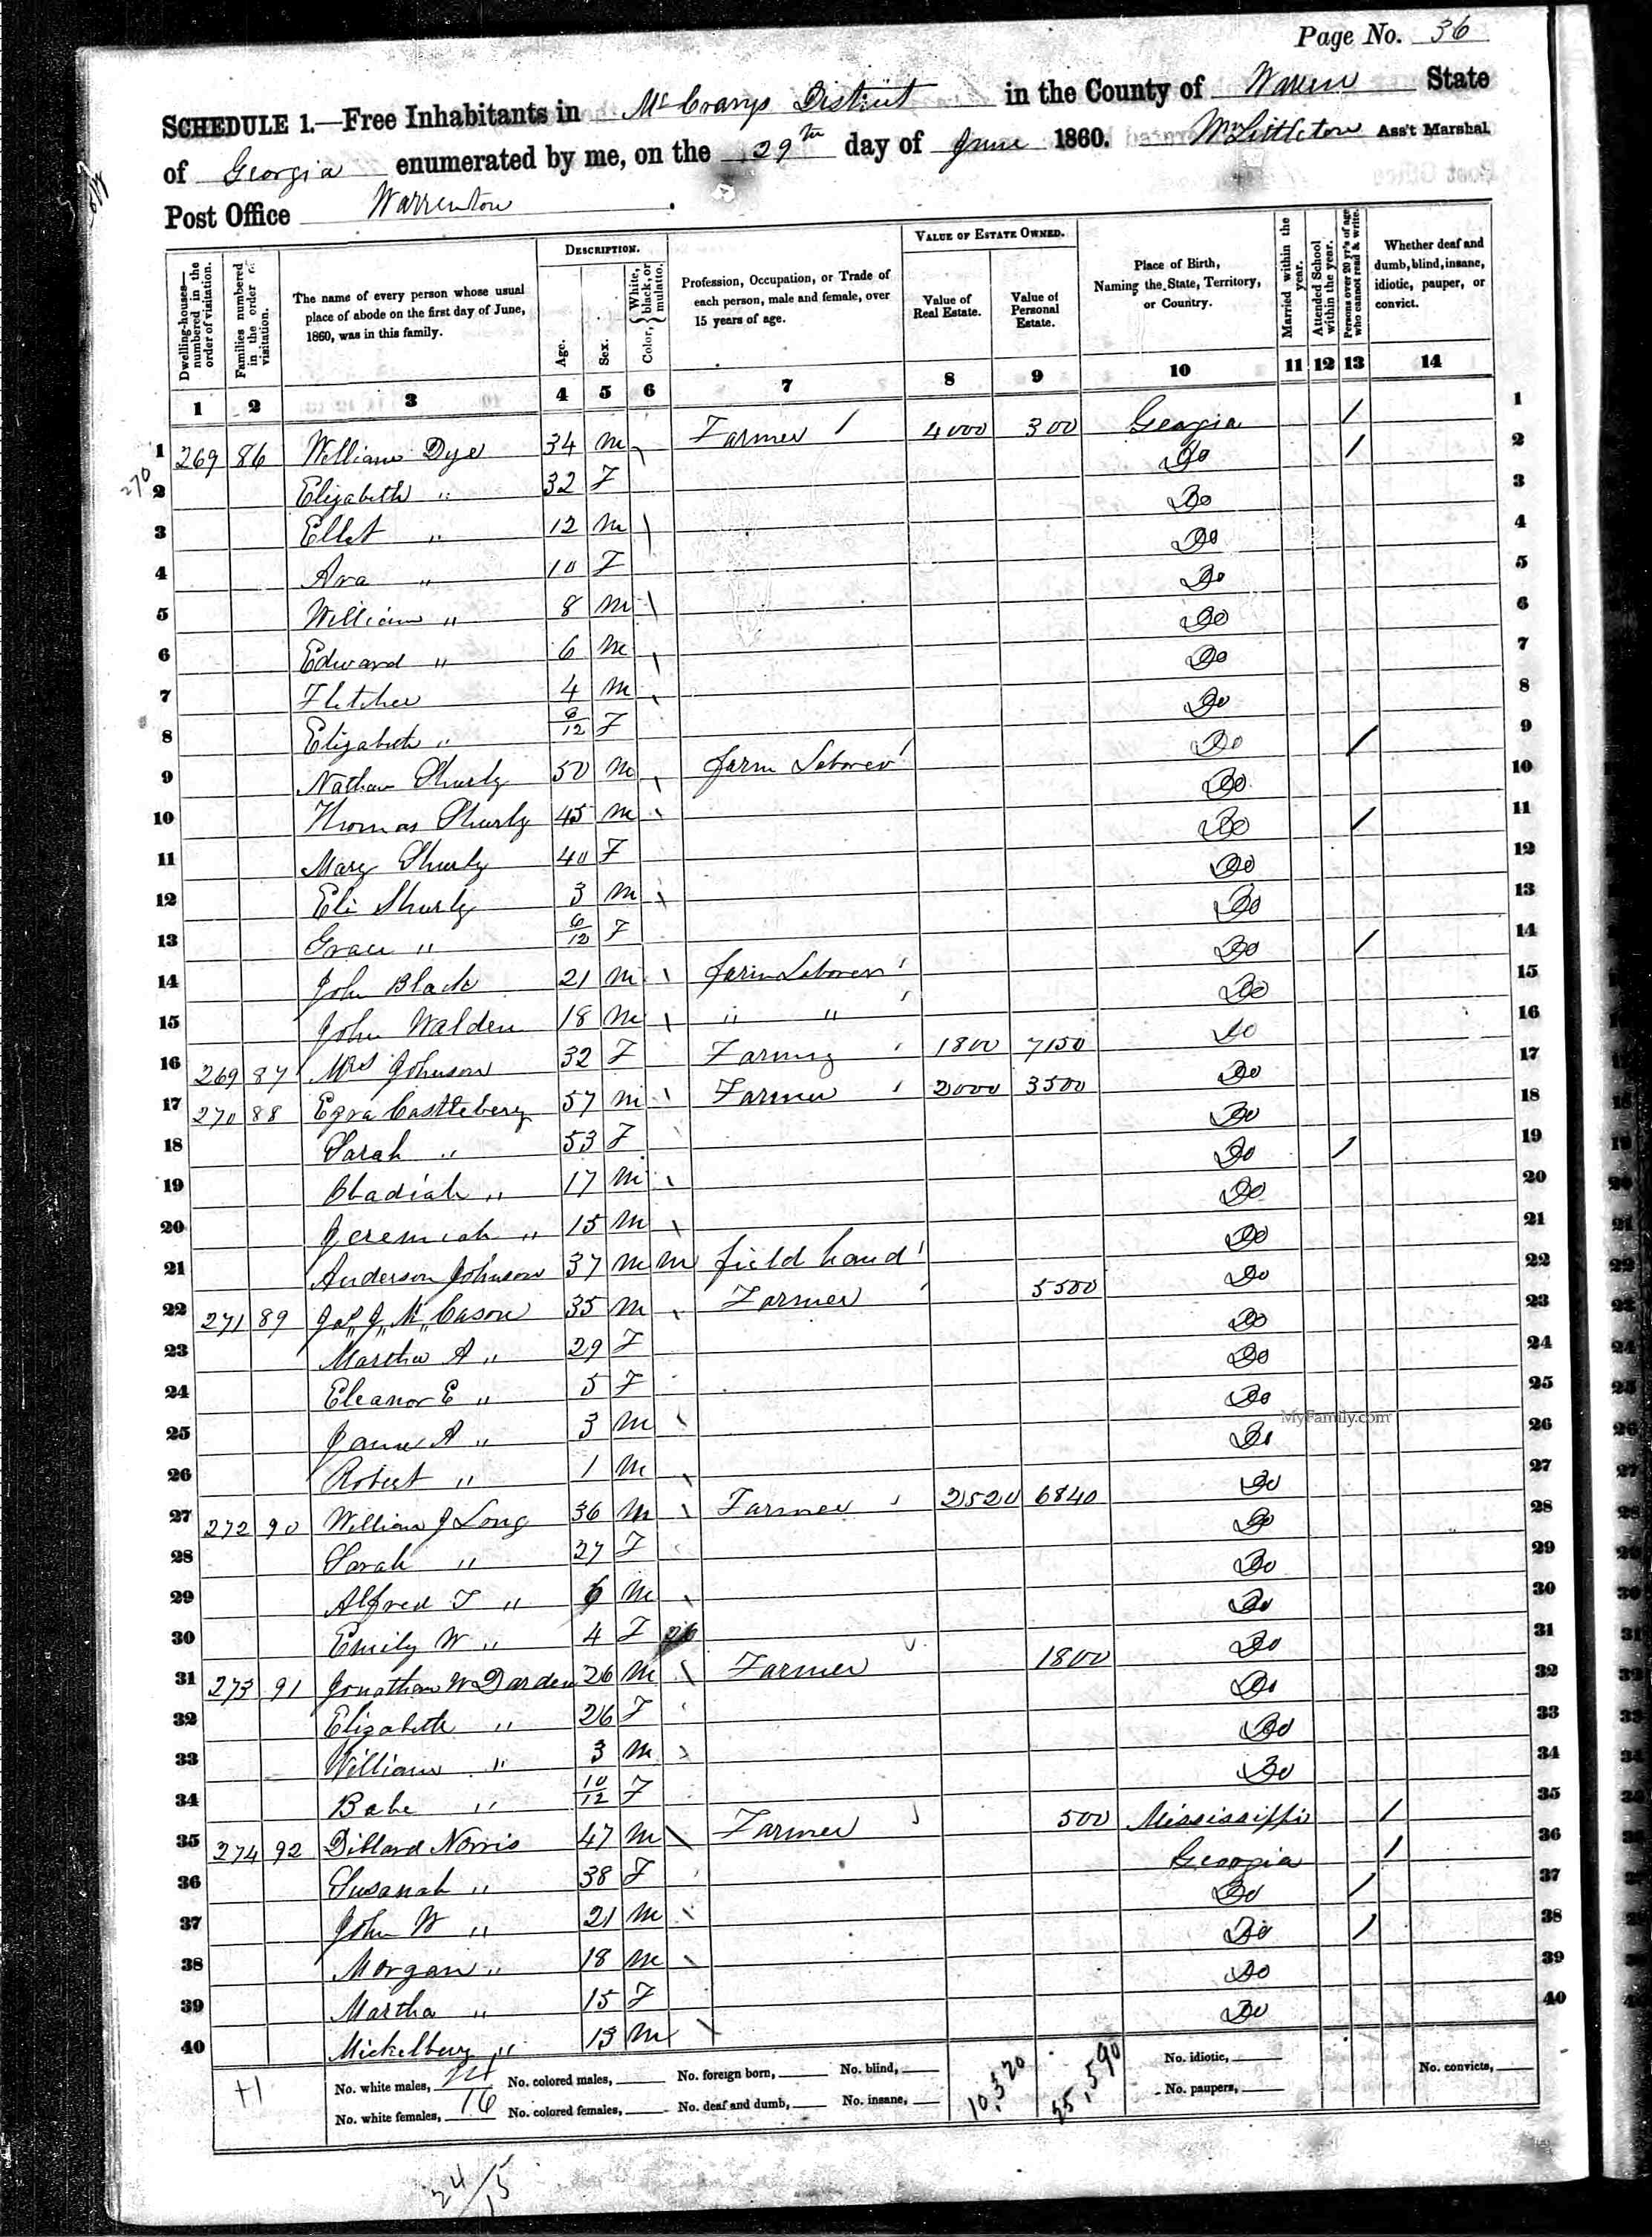 Page No. 36
SCHEDULE 1.—Free Inhabitants in McCrarys District in the County of Warren State
of Georgia enumerated by me, on the 29th day of June 1860. Wm Littleton Ass't Marshal.
Post Office Warrenton
Dwelling-houses—numbered in the order of visitation.
Families numbered in the order of visitation.
The name of every person whose usual place of abode on the first day of June, 1860, was in this family.
DESCRIPTION.
Age.
Sex.
Color, White, black, or mulatto.
Profession, Occupation, or Trade of each person, male and female, over 15 years of age.
VALUE OF ESTATE OWNED.
Value of Real Estate.
Value of Personal Estate.
Place of Birth, Naming the State, Territory, or Country.
Married within the year.
Attended School within the year.
Persons over 20 yr's of age who cannot read & write.
Whether deaf and dumb, blind, insane, idiotic, pauper, or convict.
1 2 3 4 5 6 7 8 9 10 11 12 13 14
1 269 86 William Dye 34 m Farmer 4000 300 Georgia / 1
270
2 Elizabeth " 32 F Do / 2
3 Ellet " 12 m Do 3
4 Ava " 10 F Do 4
5 William " 8 m Do 5
6 Edward " 6 m Do 6
7 Fletcher 4 m Do 7
8 Elizabeth " 6/12 F Do 8
9 Nathan Shurly 50 m farm Laborer Do / 9
10 Thomas Shurly 45 m Do 10
11 Mary Shurly 40 F Do / 11
12 Eli Shurly 3 m Do 12
13 Grace " 6/12 F Do 13
14 John Black 21 m farm Laborer Do / 14
15 John Walden 18 m " " Do 15
16 269 87 Mrs Johnson 32 F Farming 1800 7150 Do 16
17 270 88 Ezra Castlebery 57 m Farmer 2000 3500 Do 17
18 Sarah " 53 F Do 18
19 Obadiah " 17 m Do / 19
20 Jeremiah " 15 m Do 20
21 Anderson Johnson 37 m m field hand Do 21
22 271 89 Cason 35 m Farmer 5500 Do 22
23 Martha A " 29 F Do 23
24 Eleanor E " 5 F Do 24
25 A " 3 m Do 25
MyFamily.com
26 Robert " 1 m Do 26
27 272 90 William J Long 36 m Farmer 2520 6840 Do 27
28 Sarah " 27 F Do 28
29 Alfred T " 6 m Do 29
30 Emily W " 4 F Do 30
31 273 91 Jonathan W Darden 26 m Farmer 1800 Do 31
32 Elizabeth " 26 F Do 32
33 William " 3 m Do 33
34 Babe " 10/12 F Do 34
35 274 92 Dillard Norris 47 m Farmer 500 Mississippi / 35
36 Susanah " 38 F Georgia / 36
37 John W " 21 m Do / 37
38 Morgan " 18 m Do / 38
39 Martha " 15 F Do 39
40 Mickelbery " 13 m Do 40
No. white males, 24 No. colored males, No. foreign born, No. blind, 10,320 25,590 No. idiotic, No. convicts,
No. white females, 16 No. colored females, No. deaf and dumb, No. insane, No. paupers,
24/15